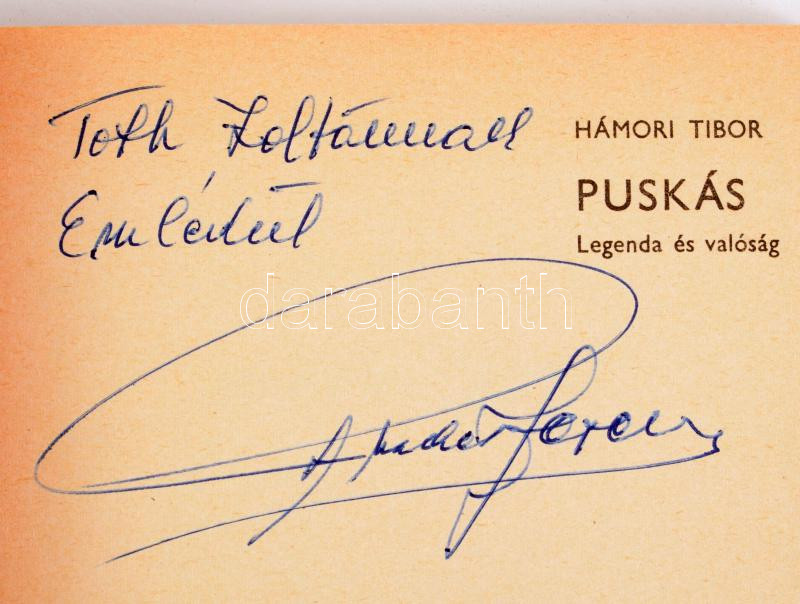 Toth Zoltánnak
Emlékül
HÁMORI TIBOR
PUSKÁS
Legenda és valóság
darabanth
Puskás Ferenc